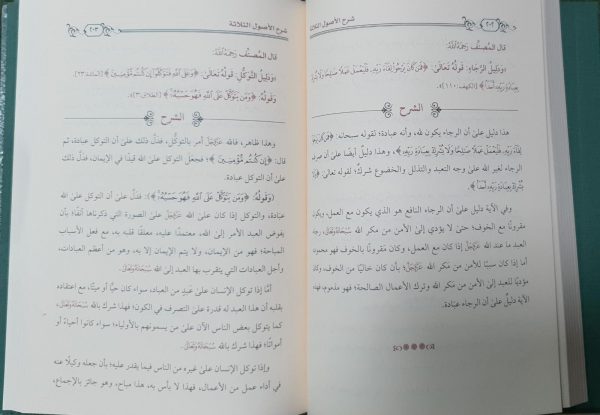 ٢٠٢
شرح الأصول الثلاثة
قال المُصنِّف رَحِمَهُ اللَّهُ:
«ودَلِيلُ الرَّجَاءِ: قَولُهُ تَعَالَى: ﴿فَمَن كَانَ يَرْجُوا۟ لِقَآءَ رَبِّهِۦ فَلْيَعْمَلْ عَمَلًا صَٰلِحًا وَلَا يُشْرِكْ
بِعِبَادَةِ رَبِّهِۦٓ أَحَدًۢا﴾ [الكهف: ١١٠]».
الشرح
هذا دليل على أن الرجاء يكون لله، وأنه عبادة؛ لقوله سبحانه: ﴿فَمَن كَانَ يَرْجُوا۟
لِقَآءَ رَبِّهِۦ فَلْيَعْمَلْ عَمَلًا صَٰلِحًا وَلَا يُشْرِكْ بِعِبَادَةِ رَبِّهِۦٓ﴾، وهذا دليل أيضًا على أن صرف
الرجاء لغير الله على وجه التعبد والتذلل والخضوع شرك؛ لقوله تعالى: ﴿وَلَا
يُشْرِكْ بِعِبَادَةِ رَبِّهِۦٓ أَحَدًۢا﴾.
وفي الآية دليل على أن الرجاء النافع هو الذي يكون مع العمل، ويكون
مقرونًا مع الخوف؛ حتى لا يؤدي إلى الأمن من مكر الله، ورجاء
العبد ما عند الله إذا كان مع العمل، وكان مقرونًا بالخوف فهو محمود،
أما إذا كان سببًا للأمن من مكر الله؛ بأن كان خاليًا من الخوف، وكان
مؤديًا للعبد إلى الأمن من مكر الله وترك الأعمال الصالحة؛ فهو مذموم، فهذه
الآية دليلٌ على أن الرجاء عبادة.
شرح الأصول الثلاثة
٢٠٣
قال المُصنِّف رَحِمَهُ اللَّهُ:
«ودَلِيلُ التَّوَكُّلِ: قَولُهُ تَعَالَى: ﴿وَعَلَى ٱللَّهِ فَتَوَكَّلُوٓا۟ إِن كُنتُم مُّؤْمِنِينَ﴾ [المائدة: ٢٣]،
وَقَولُهُ: ﴿وَمَن يَتَوَكَّلْ عَلَى ٱللَّهِ فَهُوَ حَسْبُهُۥٓ﴾ [الطلاق: ٣]».
الشرح
وهذا ظاهر، فالله عَزَّوَجَلَّ أمر بالتوكُّل، فدلَّ ذلك على أن التوكل عبادة، ثم
قال: ﴿إِن كُنتُم مُّؤْمِنِينَ﴾؛ فجعل التوكل على الله قيدًا في الإيمان، فدلَّ ذلك
على أن التوكل عبادة.
(وَقَولُهُ: ﴿وَمَن يَتَوَكَّلْ عَلَى ٱللَّهِ فَهُوَ حَسْبُهُۥٓ﴾): فدلَّ على أن التوكل على الله
عبادة، والتوكل إذا كان على الله عَزَّوَجَلَّ على الصورة التي ذكرناها آنفًا؛ بأن
يفوض العبد الأمر إلى الله، معتمدًا عليه، معلقًا قلبه به، مع فعل الأسباب
المباحة؛ فهو من الإيمان، ولا يتم الإيمان إلا به، وهو من أعظم العبادات،
وأجل العبادات التي يتقرب بها العبد إلى الله سُبْحَانَهُ وَتَعَالَى.
أمَّا إذا توكل الإنسان على عبدٍ من العباد، سواء كان حيًّا أو ميتًا، مع إعتقاده
بقلبه أن هذا العبد له قدرة على التصرف في الكون؛ فهذا شرك بالله سُبْحَانَهُ وَتَعَالَى،
كما يتوكل بعض الناس الآن على من يسمونهم بالأولياء؛ سواء كانوا أحياءً أو
أمواتًا؛ فهذا شرك بالله سُبْحَانَهُ وَتَعَالَى.
وإذا توكل الإنسان على غيره من الناس فيما يقدر عليه؛ بأن جعله وكيلًا عنه
في أداء عمل من الأعمال، فهذا لا يأس به، هذا مباح، وهو جائز بالإجماع،